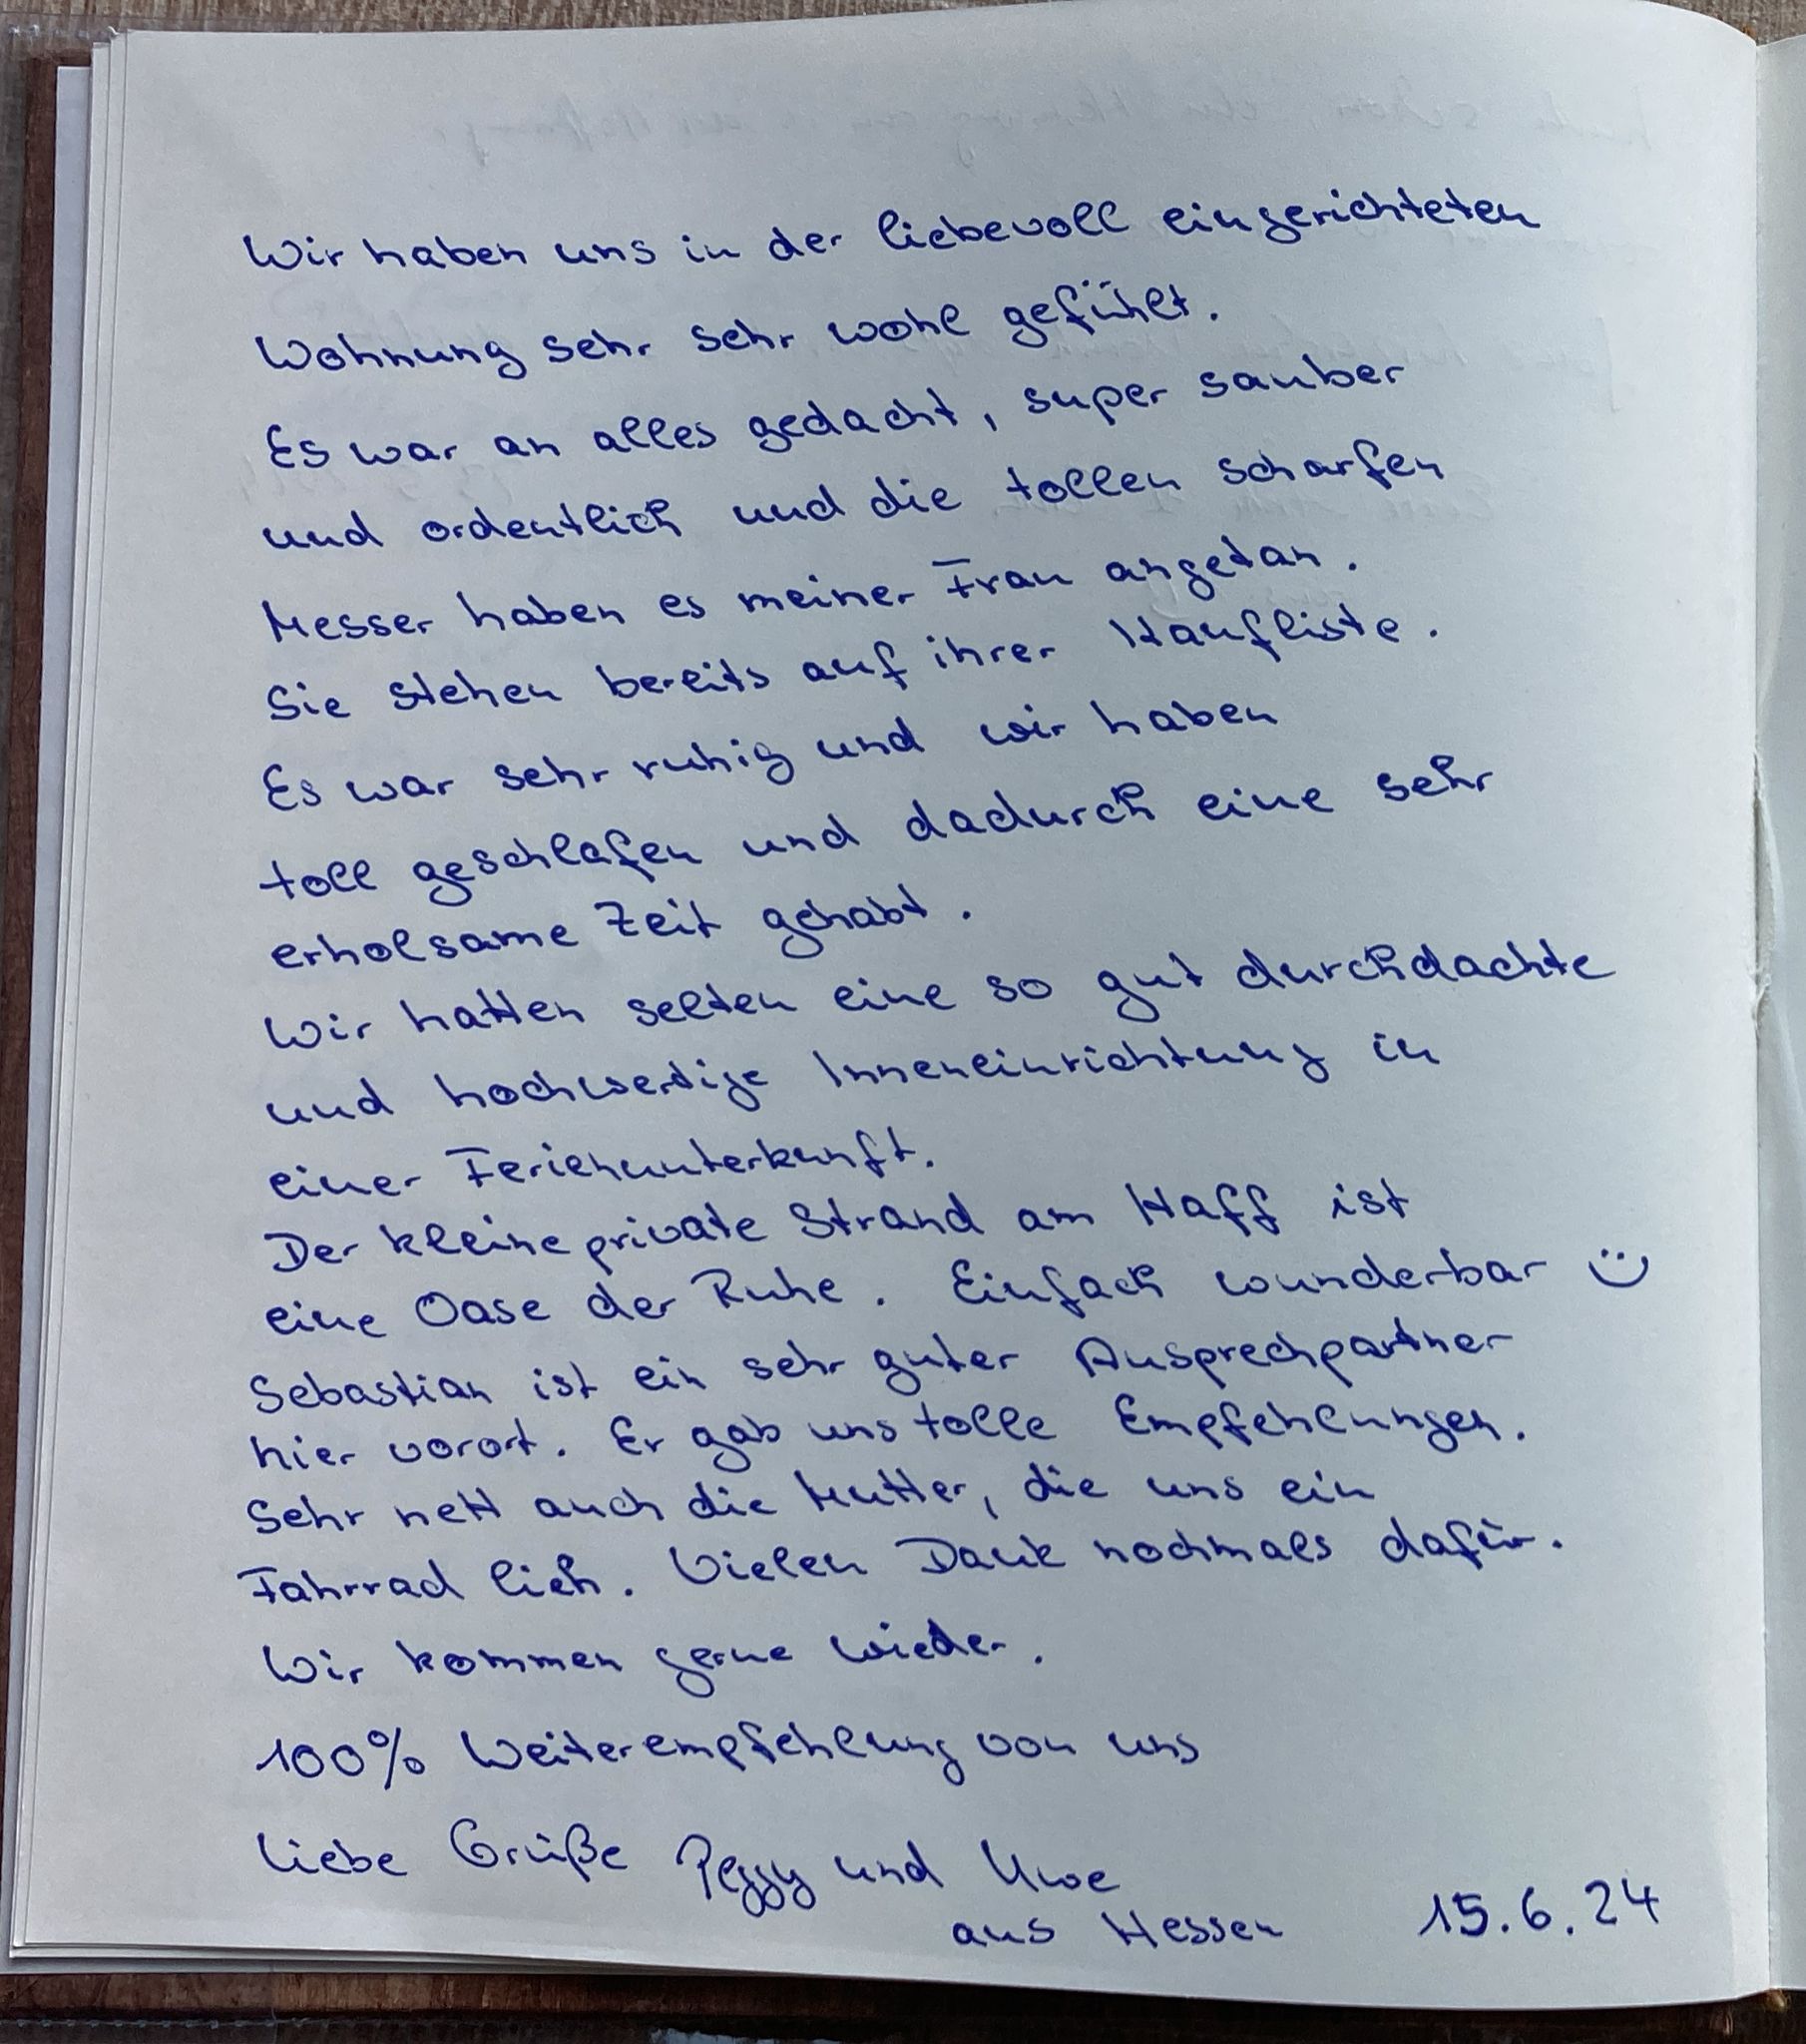 Wir haben uns in der liebevoll eingerichteten
Wohnung sehr sehr wohl gefühlt.
Es war an alles gedacht, super sauber
und ordentlich und die tollen scharfen
Messer haben es meiner Frau angetan.
Sie stehen bereits auf ihrer Kaufliste.
Es war sehr ruhig und wir haben
toll geschlafen und dadurch eine sehr
erholsame Zeit gehabt.
Wir hatten selten eine so gut durchdachte
und hochwertige Inneneinrichtung in
einer Ferienunterkunft.
Der kleine private Strand am Haff ist
eine Oase der Ruhe. Einfach wunderbar ☺
Sebastian ist ein sehr guter Ansprechpartner
hier vorort. Er gab uns tolle Empfehlungen.
Sehr nett auch die Mutter, die uns ein
Fahrrad lieh. Vielen Dank nochmals dafür.
Wir kommen gerne wieder.
100% Weiterempfehlung von uns
Liebe Grüße Peggy und Uwe
aus Hessen 15.6.24